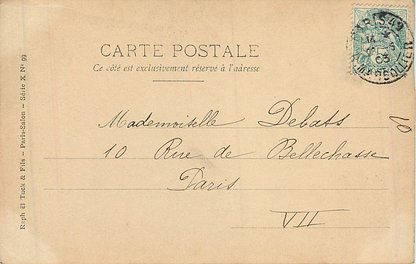 CARTE POSTALE
Ce côté est exclusivement réservé à l'adresse
Mademoiselle Debats
10 Rue de Bellechasse
Paris
VII
Raph ël Tuck & Fils - Paris-Salon - Série X N° 99
PARIS
03